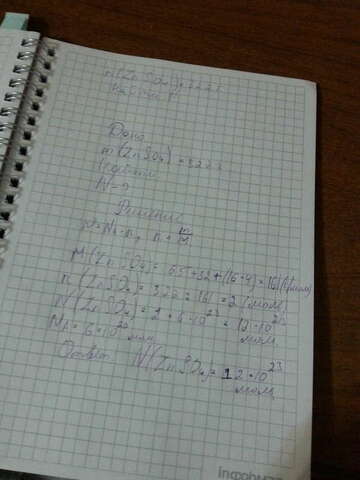 m(ZnSO4)=322 г
Дано
m(ZnSO4)=322 г
Найти
N=?
Решение
N=NA·n, n=m/M
M(ZnSO4)=65+32+(16·4)=161(г/моль)
n(ZnSO4)=322:161=2(моль)
N(ZnSO4)=2·6·10²³=12·10²³
мол
NA=6·10²³ мол
Ответ N(ZnSO4)=12·10²³
мол